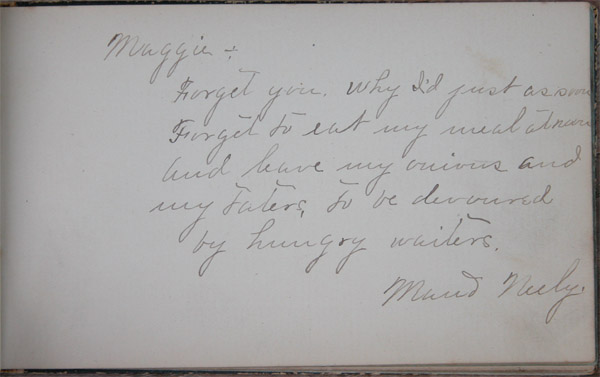 Maggie :
Forget you. Why I'd just as soon
Forget to eat my meal at noon
and leave my onions and
my taters, to be devoured
by hungry waiters.
Maud Neely.